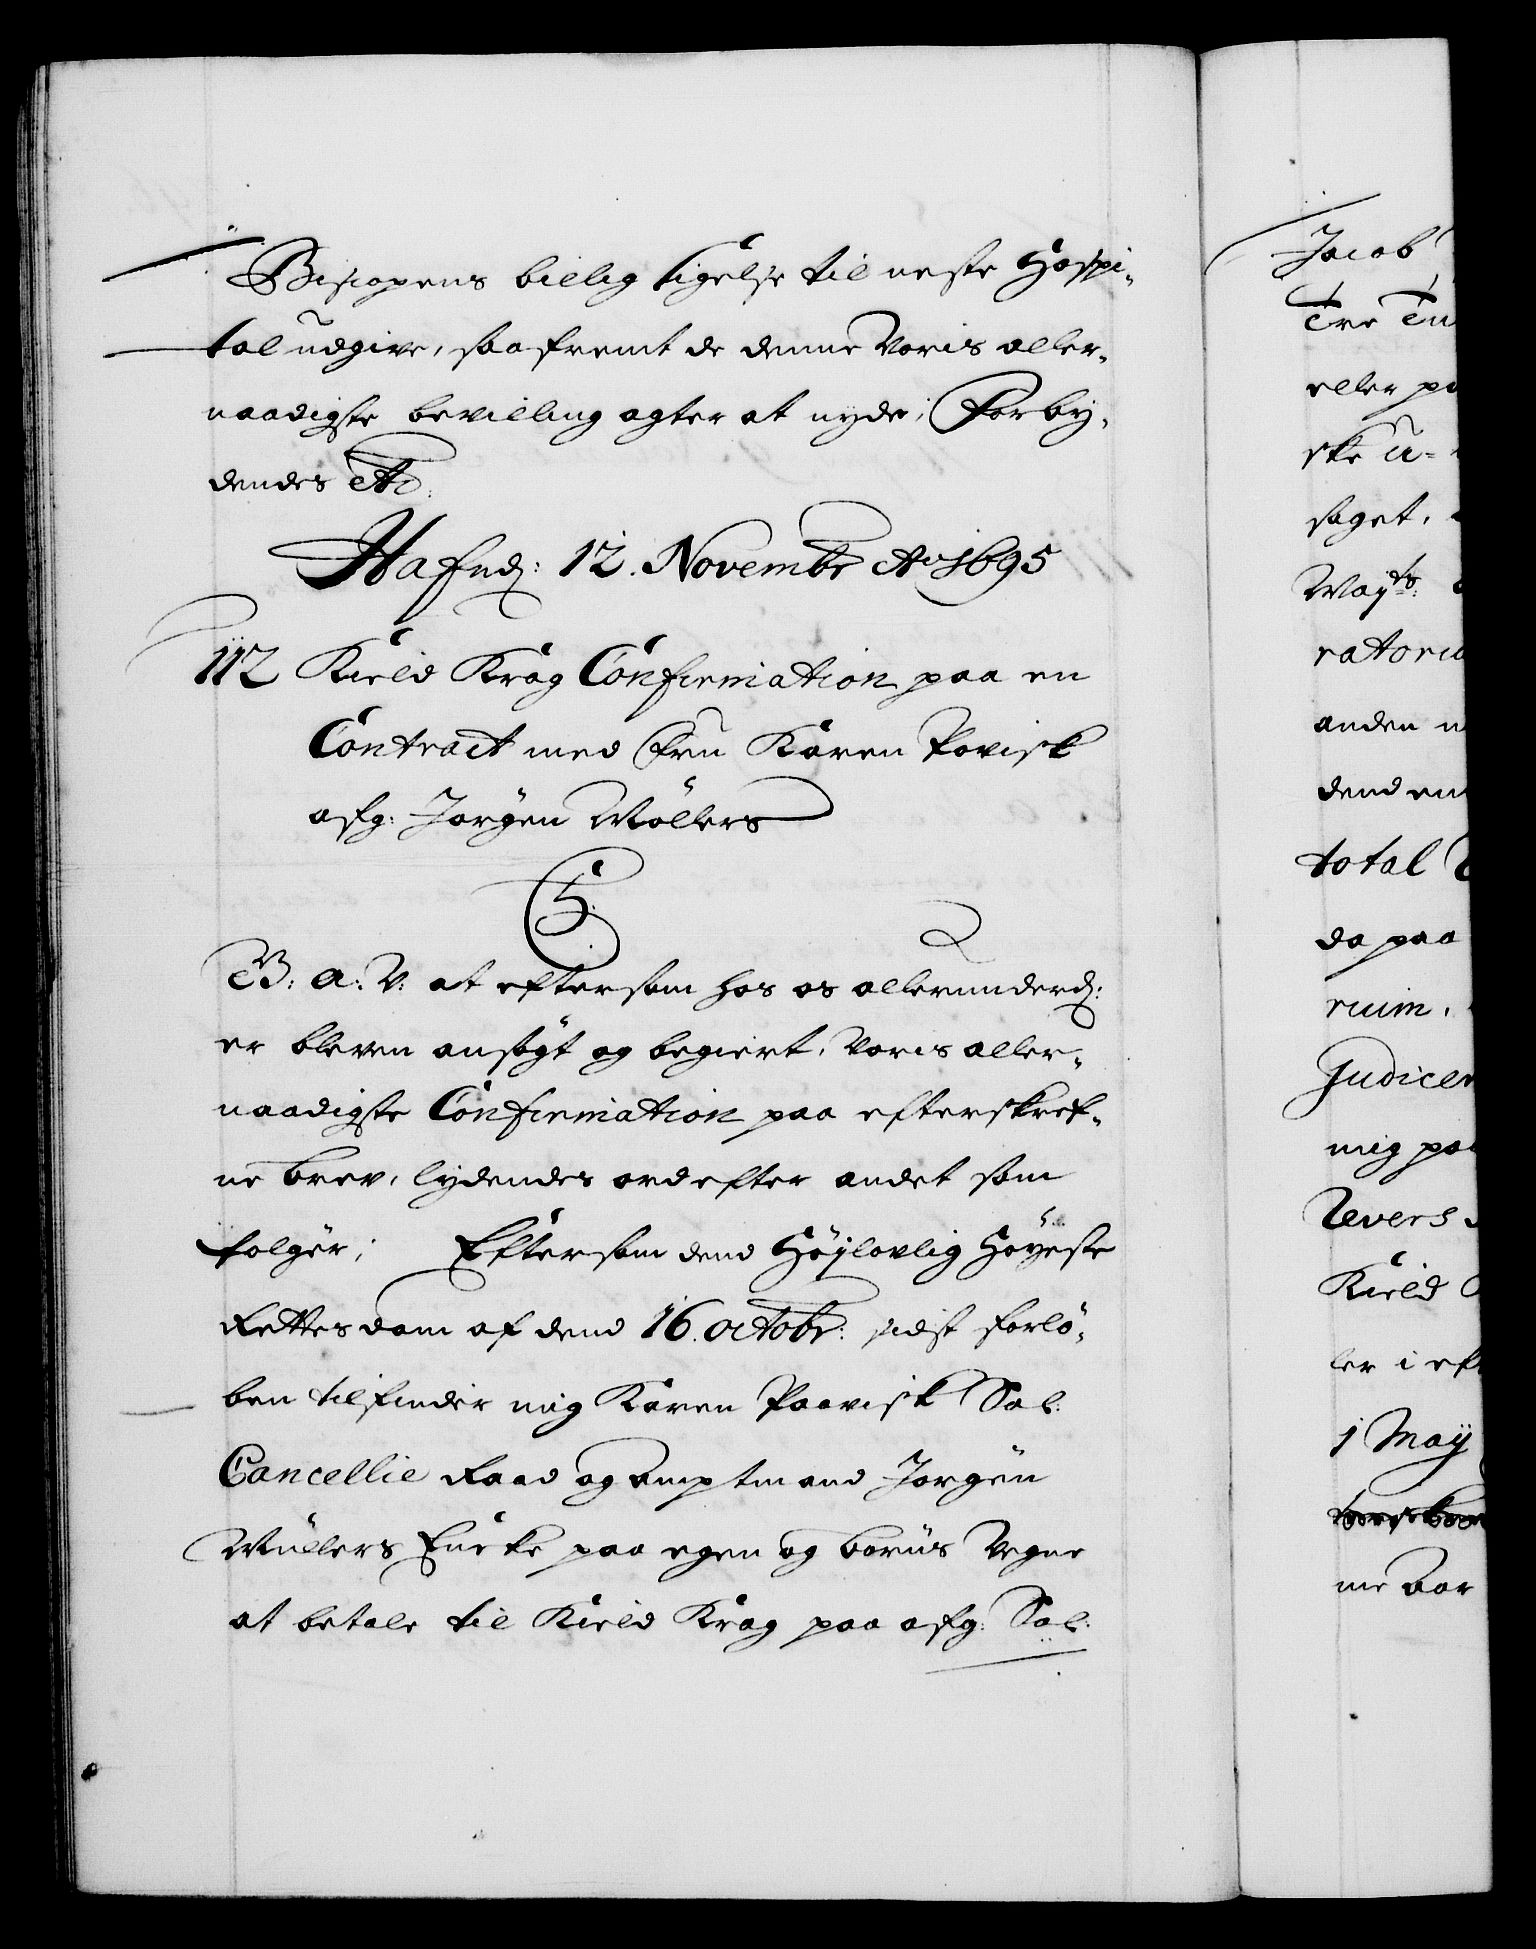 Biscopens billig sigelse til neste Hospi-
tal udgive, saafremt de denne Voris aller-
naadigste bevilling agter at nyde; Forby-
dendes etc:
Hafnd: 12. Novembr Ao 1695
112 Kield Krag Confirmation paa en
Contract med Fru Karen Povisk
afg: Jørgen Møllers
C5.
G: a: V: at eftersom hos os allerunderd:
er bleven ansøgt og begiert, Voris aller-
naadigste Confirmation paa efterskref-
ne brev, lydendes ord efter andet som
følger; Eftersom dend Høylovlig Høyeste
Rettes dom af dend 16. octobr: sidst forlø-
ben tilfinder mig Karen Paavisk Sal:
Cancellie Raad og Amptmand Jørgen
Müllers Encke paa egen og børns Vegne
at betale til Kield Krag paa afg: Sal:
Jacob
Tre Tu
eller p
ske
søget,
Mayts:
ratoriu
anden
dend
total
da paa
ruim,
Judicer
mig paa
Revers
Kield
ler i eft
1 May
me aar